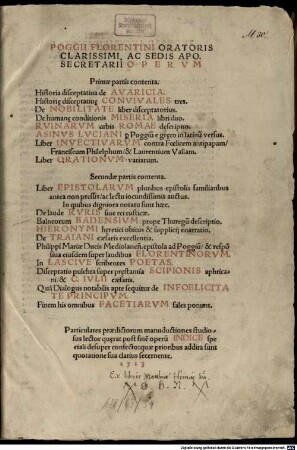 POGGII FLORENTINI ORATORIS
CLARISSIMI, AC SEDIS APO.
SECRETARII OPERVM
Primæ partis contenta.
Historia disceptatiua de AVARICIA.
Historiæ disceptatiuæ CONVIVALES tres.
De NOBILITATE liber disceptatorius.
De humanę conditionis MISERIA libri duo.
RVINARVM urbis ROMAE descriptio.
ASINVS LVCIANI p Poggiū e gręco in latinū versus.
Liber INVECTIVARVM contra Fœlicem antipapam/
Franciscum Philelphum/& Laurentium Vallam.
Liber ORATIONVM variarum.
Secundæ partis contenta.
Liber EPISTOLARVM pluribus epistolis familiaribus
antea non pressis/ac lectu iocundissimis auctus.
In quibus digniora notatu sunt hæc.
De laude RVRIS siue rei rusticæ.
Balneorum BADENSIVM prope Thuregū descriptio.
HIERONYMI hęretici obitus & supplicij enarratio.
De TRAIANI cæsaris excellentia.
Philippi Mariæ Ducis Mediolanēsis epistola ad Poggiū/& respō
siua eiusdem super laudibus FLORENTINORVM.
In LASCIVE scribentes POETAS.
Disceptatio pulchra super præstantia SCIPIONIS aphri-
cani/& C. IVLII cæsaris.
Qui Dialogus notabilis apte sequitur de INFOELICITA
TE PRINCIPVM.
Finem his omnibus FACETIARVM sales ponunt.
Particulares prædictorum manuductiones studio-
sus lector quęrat post finē operū INDICE spe
ciali desuper confecto:quæ prioribus addita sunt
quotatione sua clarius secernente.
1513
Ex libris